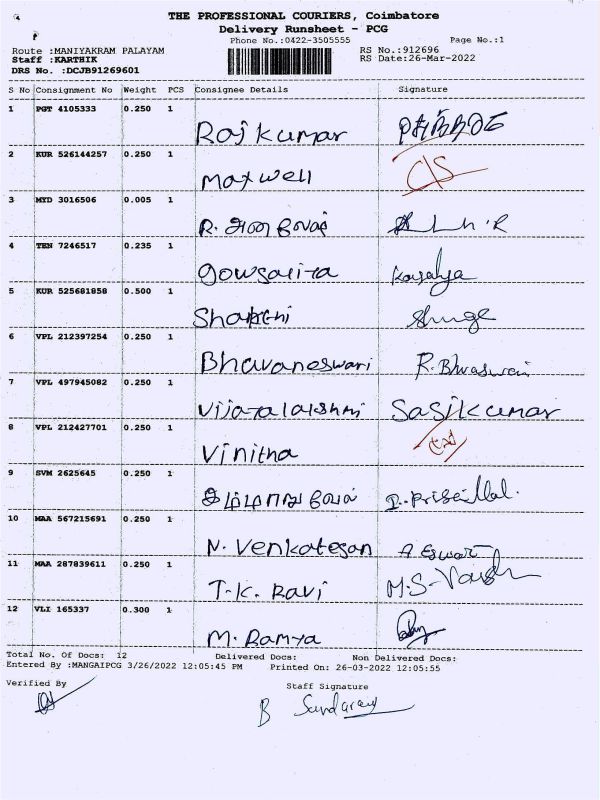 THE PROFESSIONAL COURIERS, Coimbatore
Delivery Runsheet - PCG
Phone No.:0422-3505555 Page No.:1
Route :MANIYAKRAM PALAYAM RS No.:912696
Staff :KARTHIK RS Date:26-Mar-2022
DRS No. :DCJB91269601
S No Consignment No Weight PCS Consignee Details Signature
1 PGT 4105333 0.250 1 Rajkumar
2 KUR 526144257 0.250 1 Maxwell
3 MYD 3016506 0.005 1 R.
4 TEN 7246517 0.235 1 Gowsaliya Kousalya
5 KUR 525681858 0.500 1 Shakthi
6 VPL 212397254 0.250 1 Bhavaneswari
7 VPL 497945082 0.250 1 Vijayalakshmi Sasikumar
8 VPL 212427701 0.250 1 Vinitha
9 SVM 2625645 0.250 1
10 MAA 567215691 0.250 1 N. Venkatesan A Eswari
11 MAA 287839611 0.250 1 T.K. Ravi
12 VLI 165337 0.300 1 M. Ramya
Total No. Of Docs: 12 Delivered Docs: Non Delivered Docs:
Entered By :MANGAIPCG 3/26/2022 12:05:45 PM Printed On: 26-03-2022 12:05:55
Verified By Staff Signature
B Sundaram